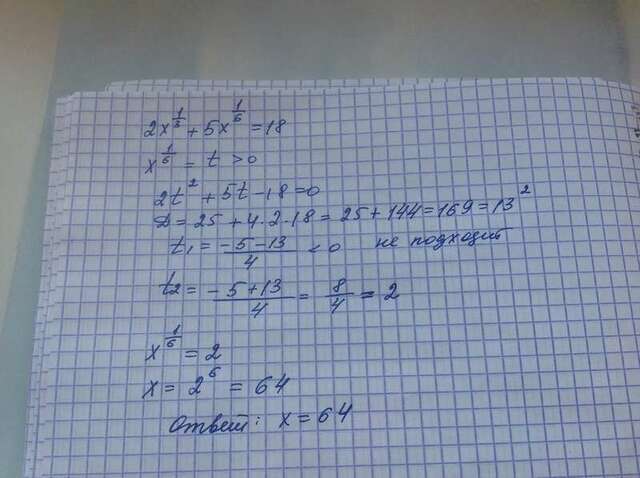 2x^{1/3} + 5x^{1/6} = 18
x^{1/6} = t > 0
2t² + 5t - 18 = 0
D = 25 + 4·2·18 = 25 + 144 = 169 = 13²
t₁ = (-5-13)/4 < 0 не подходит
t₂ = (-5+13)/4 = 8/4 = 2
x^{1/6} = 2
x = 2⁶ = 64
Ответ: x = 64